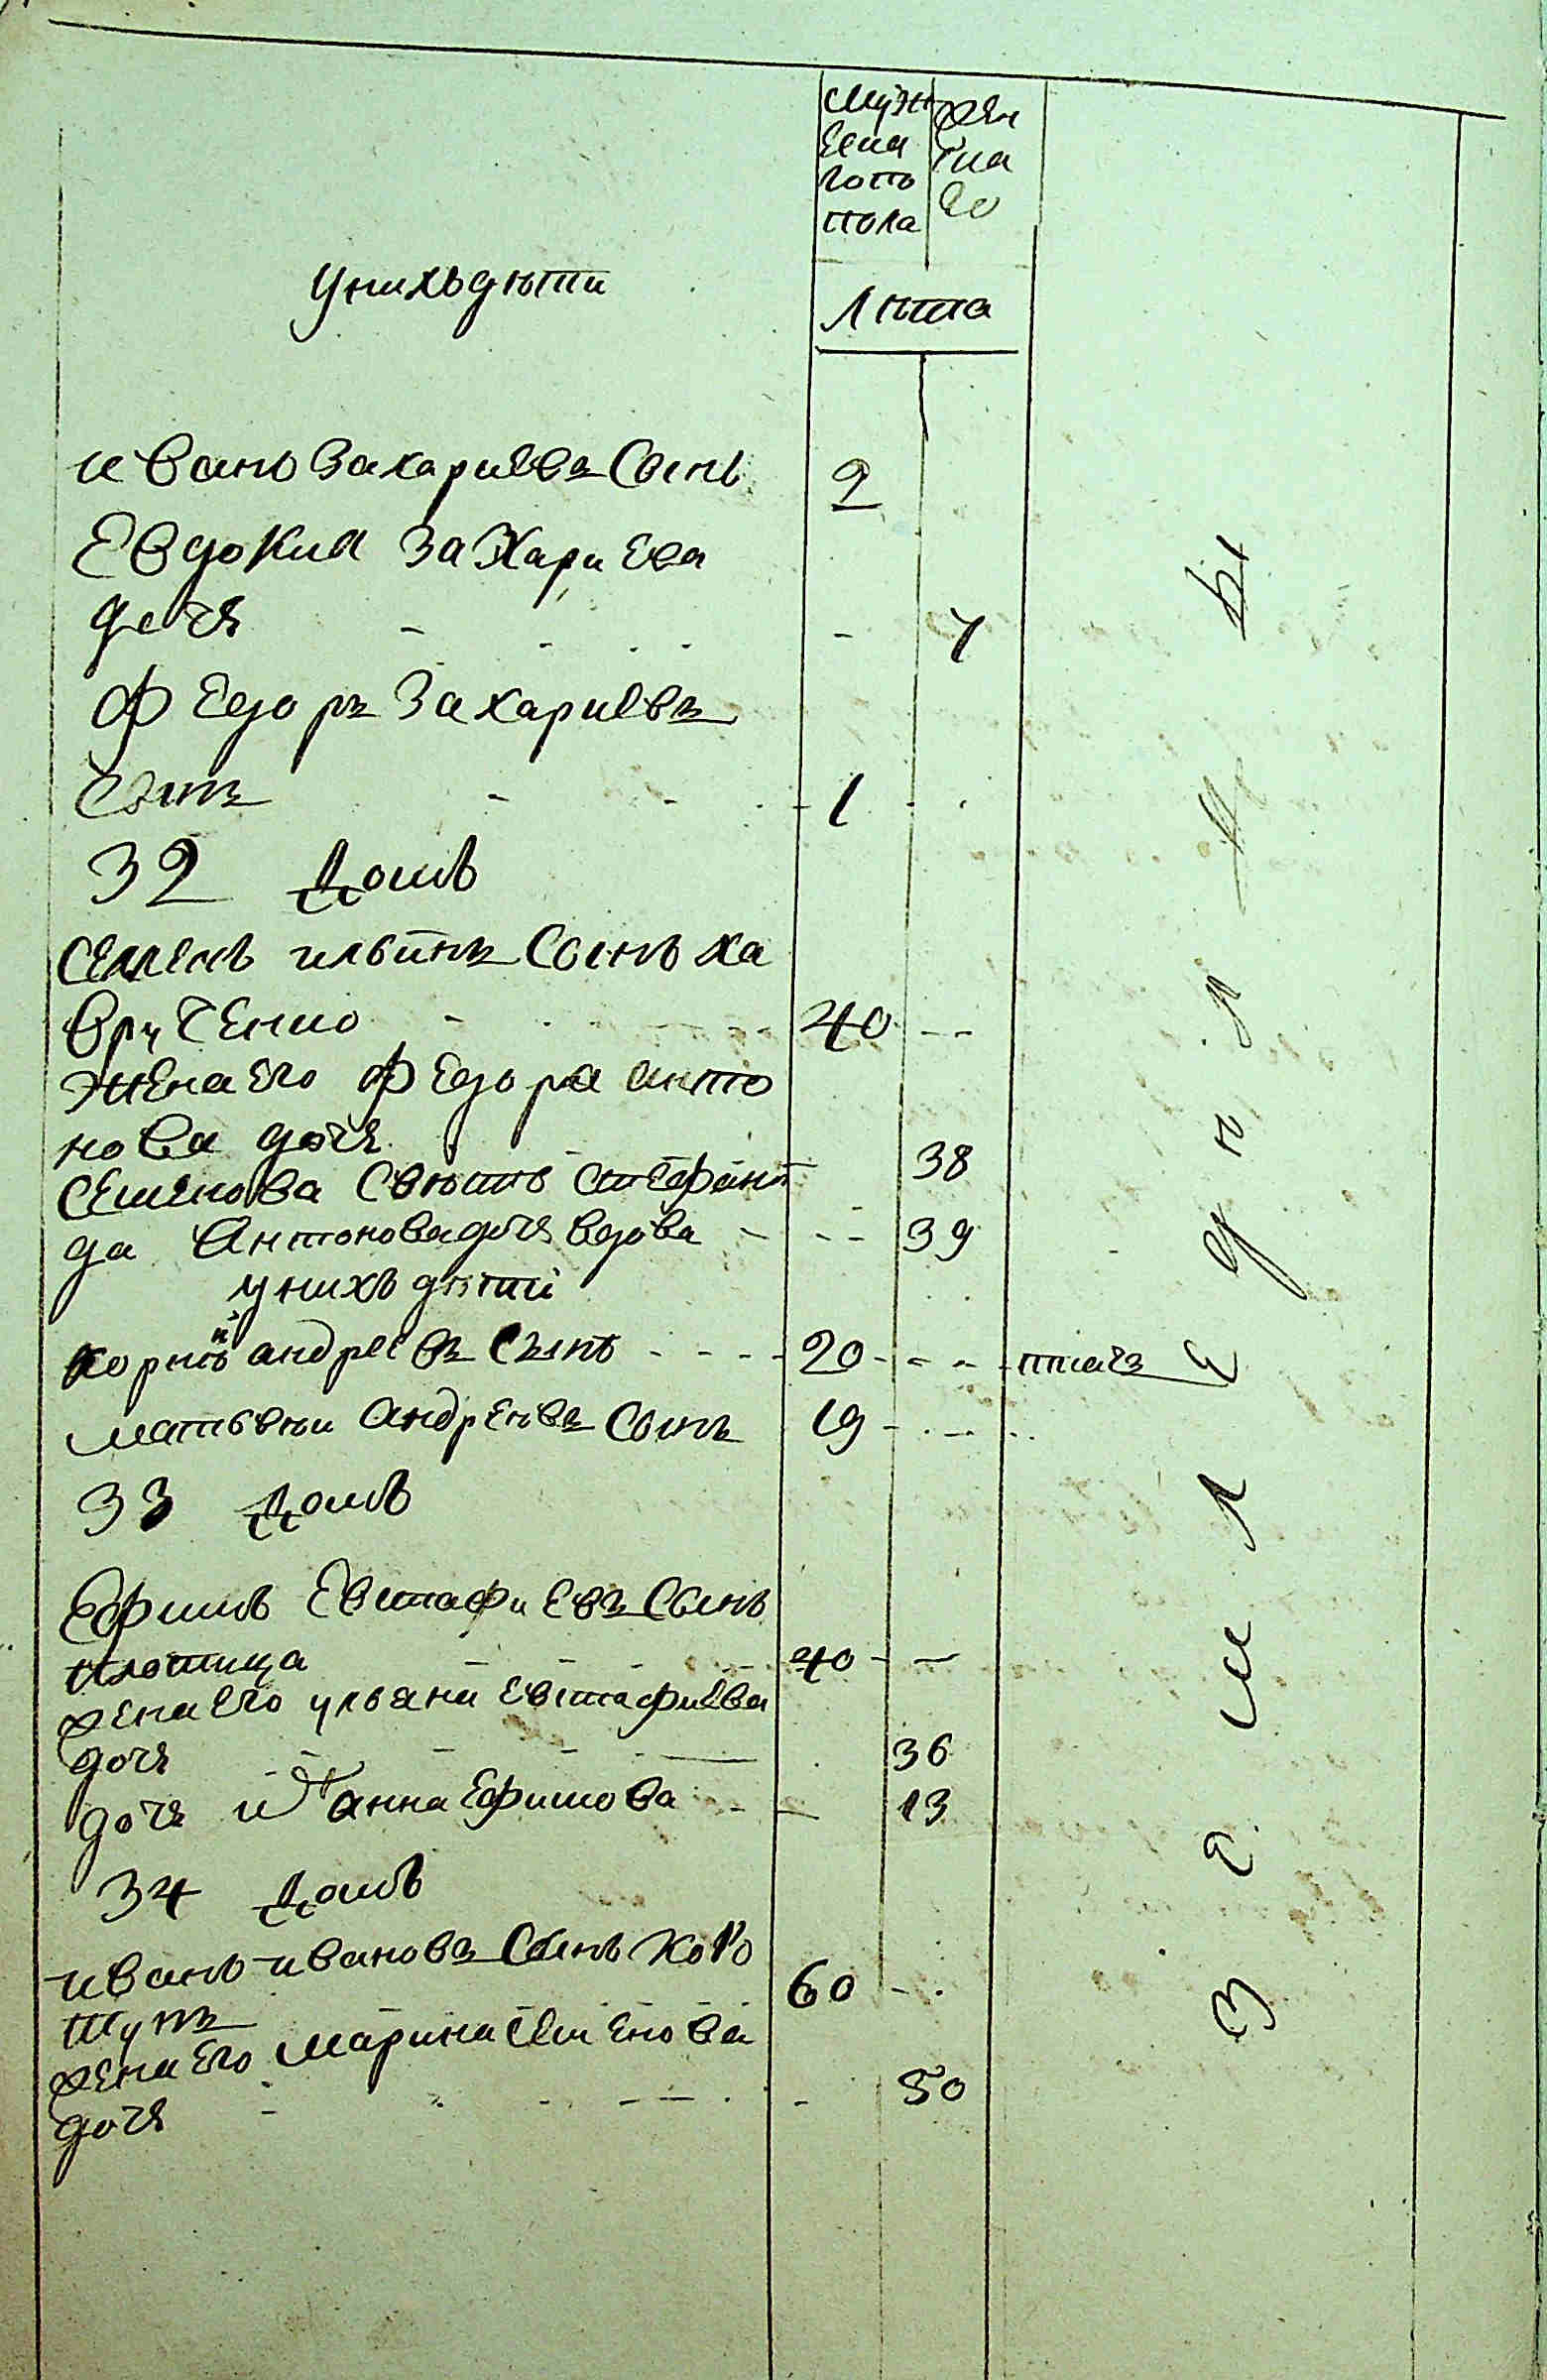 Муж
еска
гопо
пола
Жен
ска
го
У нихъ дѣти
Лѣта
иванъ Захариевъ Сынъ 2
Евдокия Захариева
дочъ - - - - 7
Федоръ Захариевъ
Сынъ - - - 1 -
32 Домъ
Семенъ ильинъ Сынъ ха
врученко - - - 40 --
Жена его Федора анто
нова дочъ 38
Семенова Свѣсть Стефани
да Антонова дочъ вдова - -- 39
у нихъ дѣти
Корнѣй андреевъ Сынъ - - - - 20 - - -
матьвѣи Андреѣвъ Сынъ 19 - - -
33 Домъ
Ефимъ Евстафиевъ Сынъ
плотица 40 - -
жена его ульяна Евстафиева
дочъ - - - 36
дочъ и анна Ефимова - - 13
34 Домъ
иванъ ивановъ Сынъ Ково
тупъ 60 - -
жена его марина Семенова
дочъ - - - - 50
Земледѣлцы